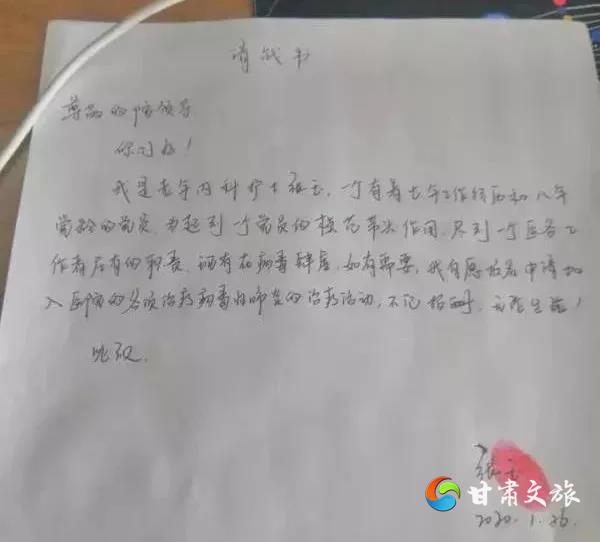 请战书
尊敬的院领导
你们好！
我是老年内科护士张玉，一个有着七年工作经历和八年
党龄的党员，为起到一个党员的模范带头作用，尽到一个医务工
作者应有的职责，现有在病毒肆虐，如有需要，我自愿报名申请加
入医院的各项治疗病毒性肺炎的治疗活动，不记报酬，无论生死！
此致
张玉
2020.1.26
甘肃文旅